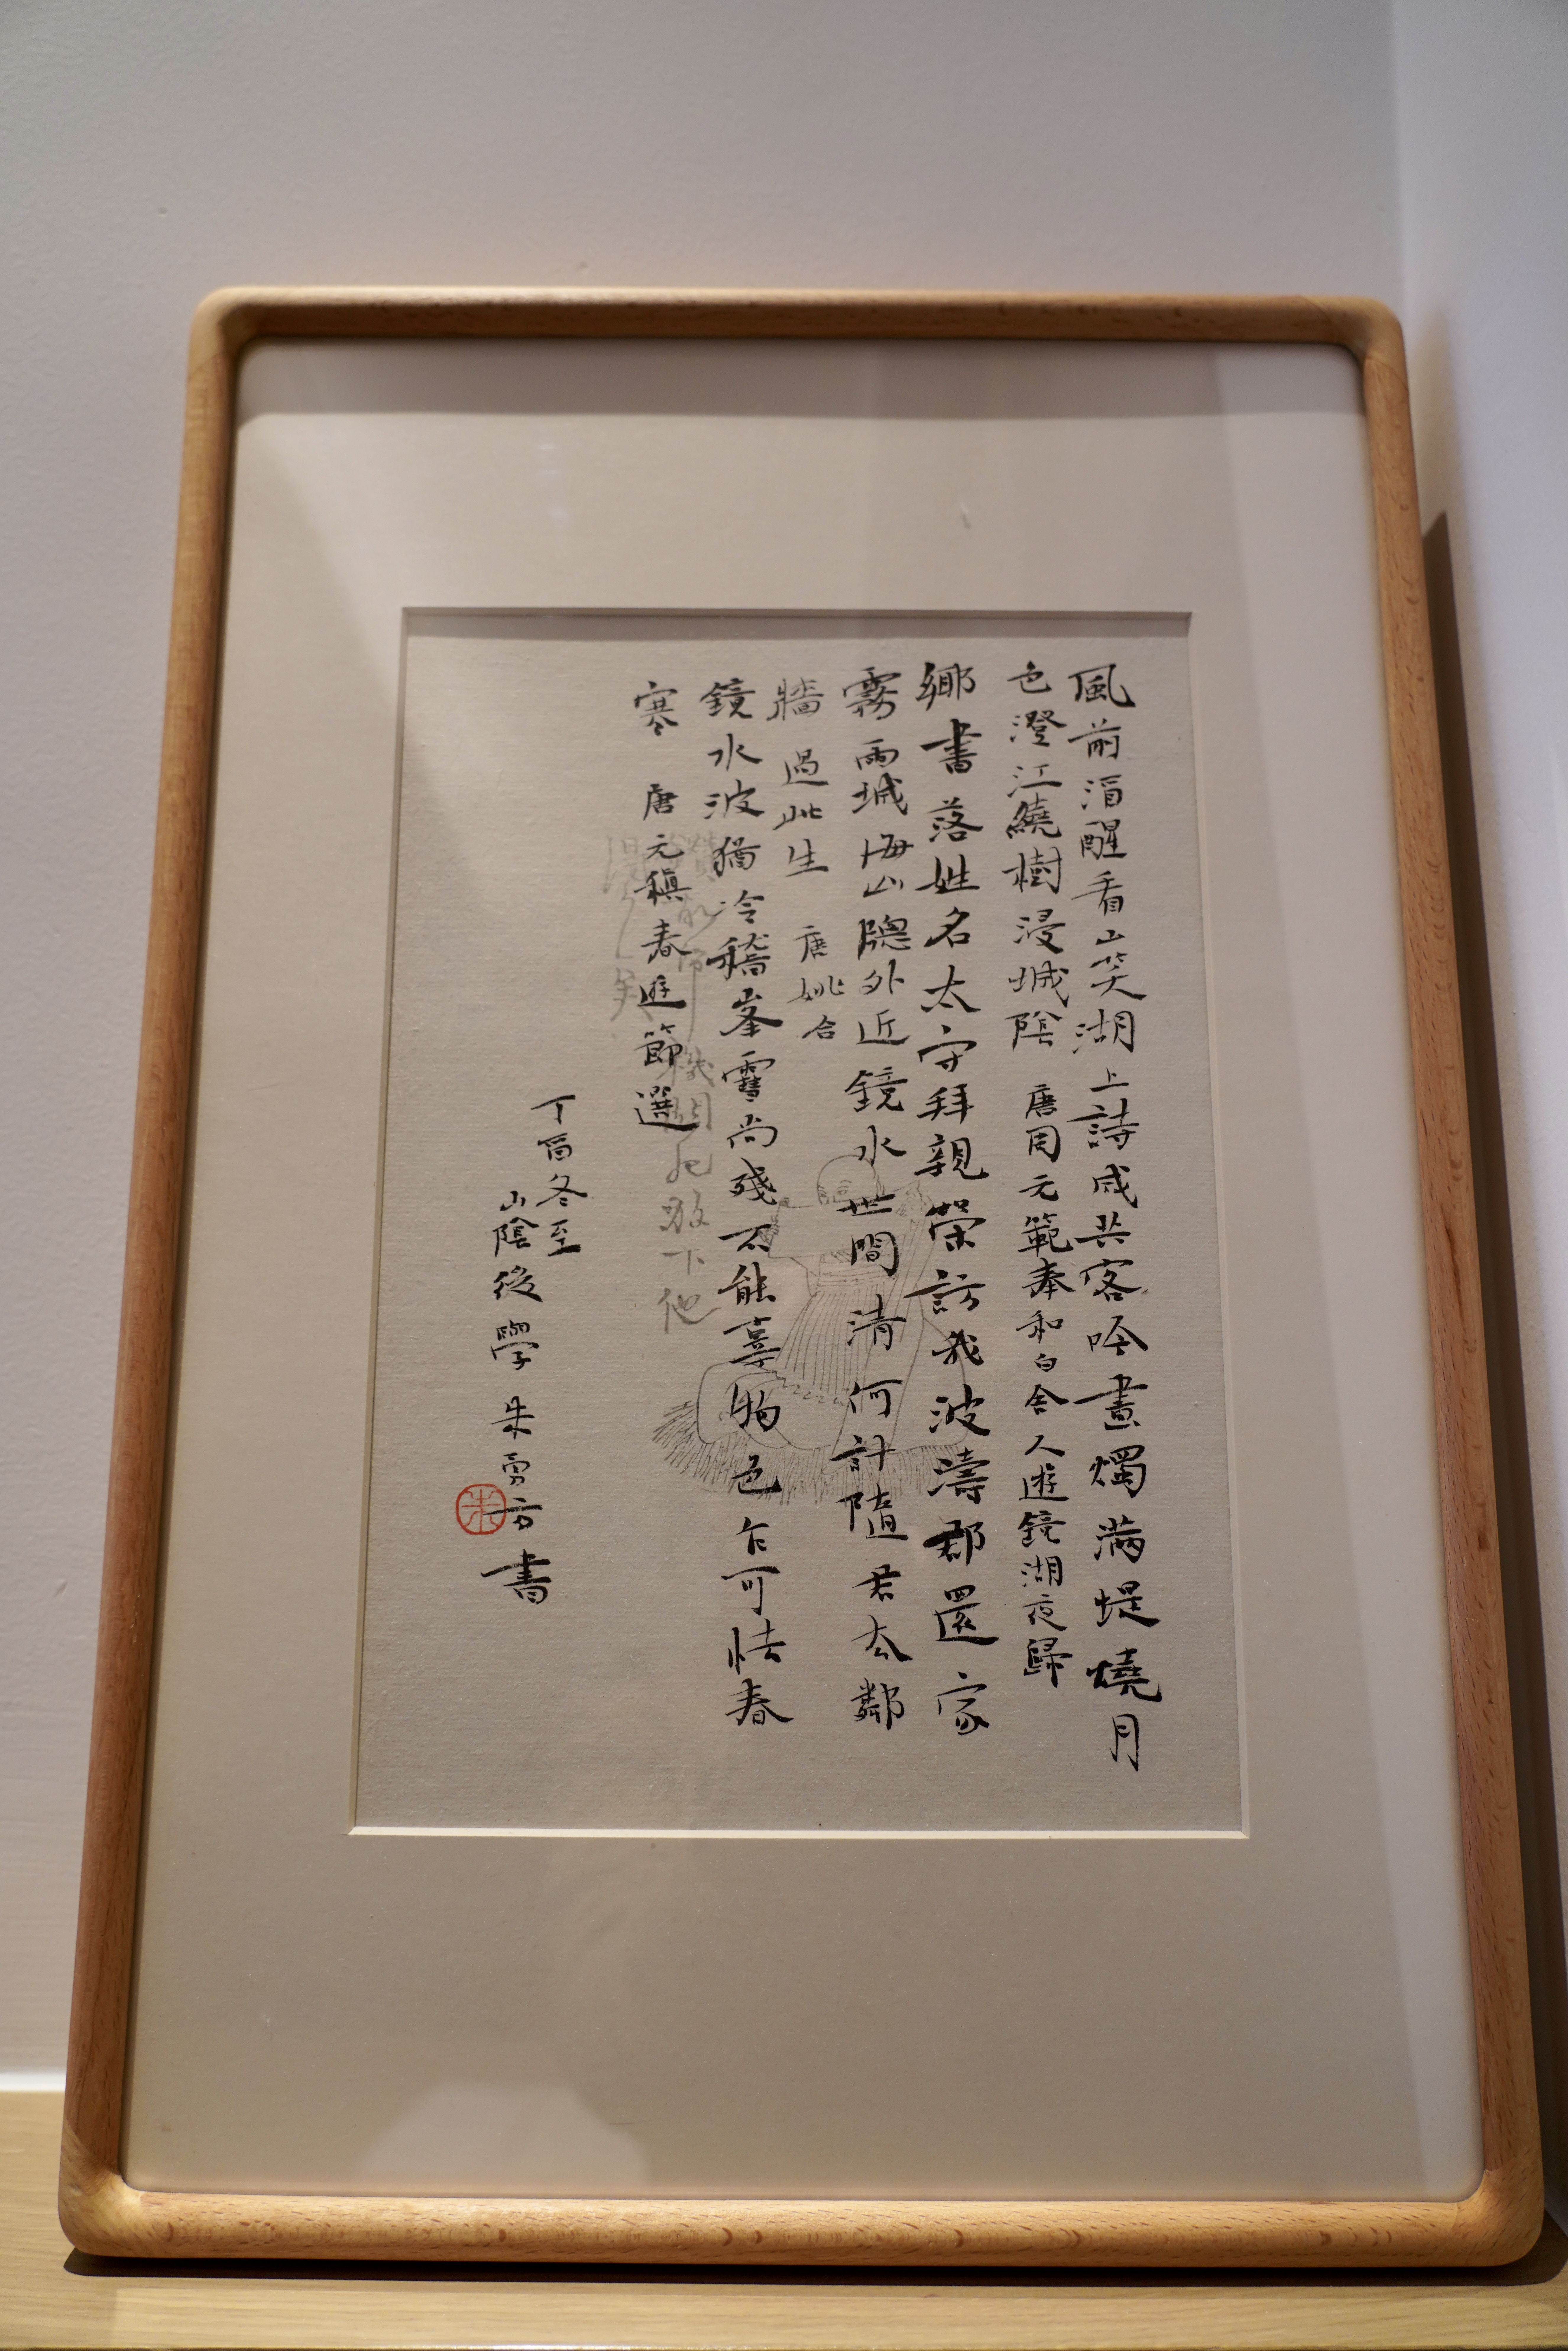 風前酒醒看山笑湖上詩成共客吟晝燭滿堤燒月
色澄江繞樹浸城陰 唐周元範奉和白舍人遊鏡湖夜歸
鄉書落姓名太守拜親榮訪我波濤郡還家
霧雨城海山隐外近鏡水世間清何計隨君去鄰
牆過此生 唐姚合
鏡水波猶冷稽峯雪尚殘不能辜物色乍可怯春
寒 唐元稹春遊節選
丁酉冬至
山陰後學朱勇方書
朱